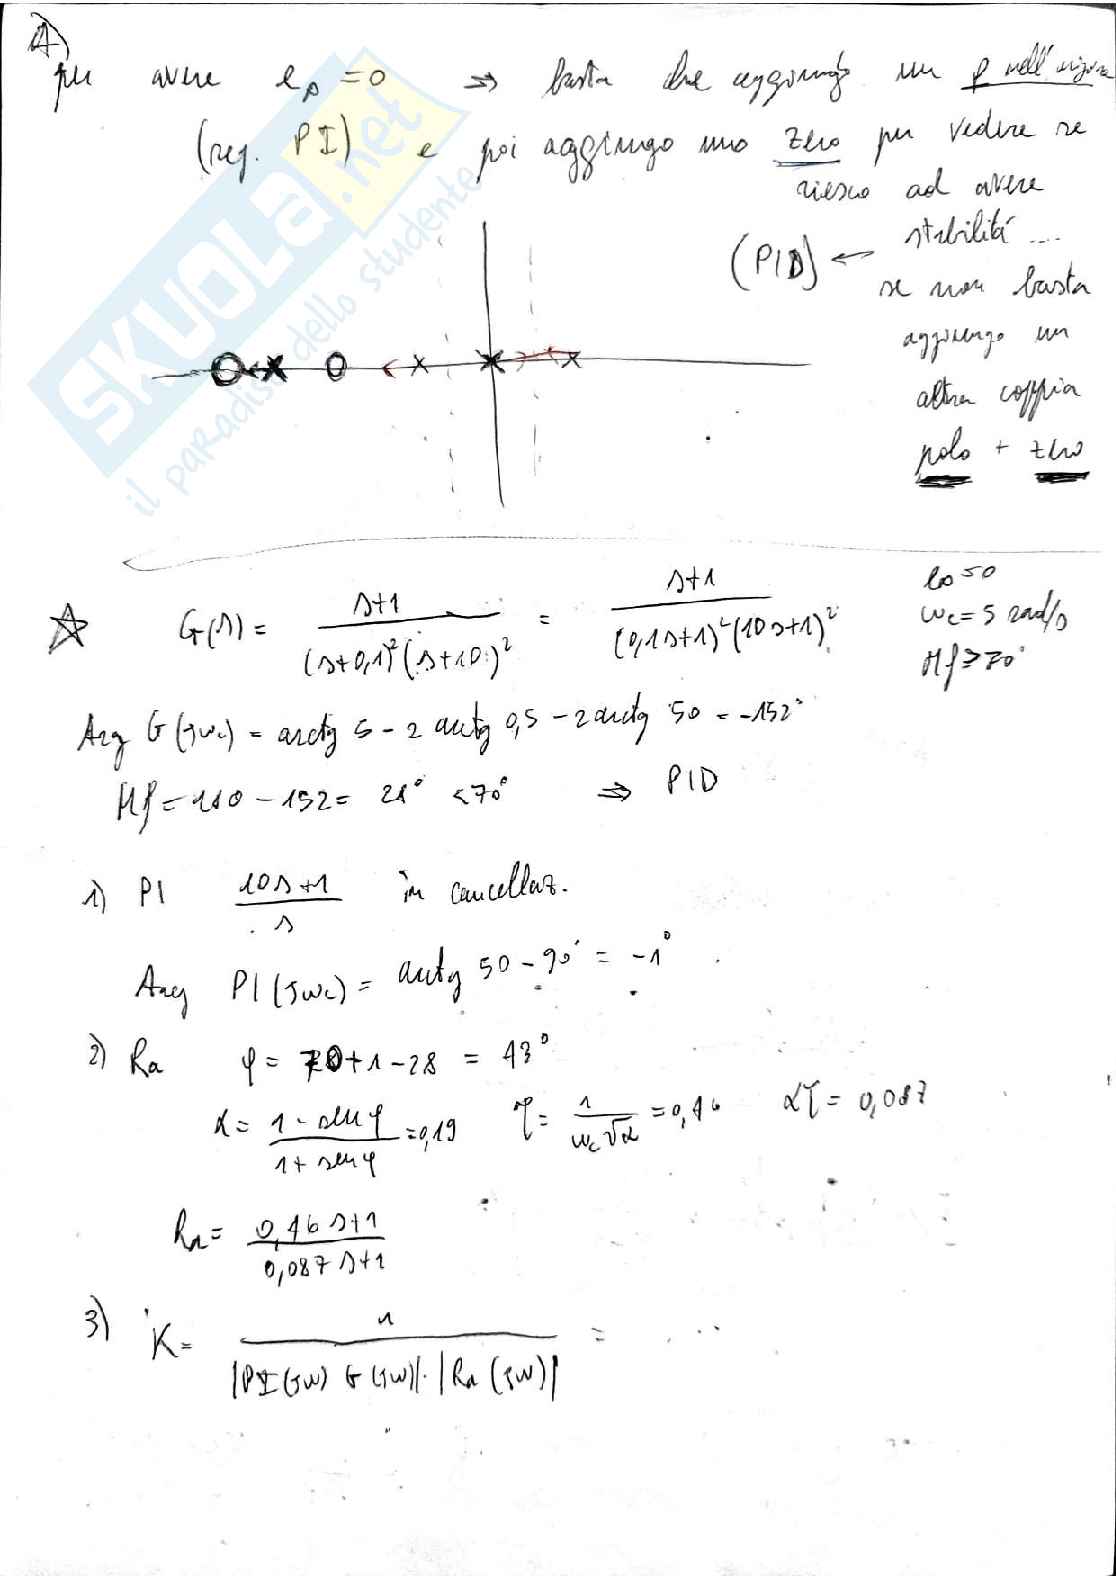 A)
per avere e_p = 0 ⇒ basta che aggiungo un p nell'origine
(reg. PI) e poi aggiungo uno zero per vedere se
riesco ad avere
stabilitá ....
(PID) ← se non basta
aggiungo un
altra coppia
polo + zero
SKUOLA.net
il paradiso dello studente
☆ G(s) = s+1 / (s+0,1)² (s+10)² = s+1 / (0,1s+1)² (10s+1)²
e∞=0
ωc = 5 rad/s
Mf ≥ 70°
Arg G(jωc) = arctg 5 - 2 arctg 0,5 - 2 arctg 50 = -152°
Mf = 180 - 152 = 28° < 70° ⇒ PID
1) PI 10s+1 / s in cancellaz.
Arg PI(jωc) = arctg 50 - 90° = -1°
2) Ra φ = 70+1-28 = 43°
α = 1 - sen φ / 1 + sen φ = 0,19 τ = 1 / ωc √α = 0,46 ατ = 0,087
Ra = 0,46 s+1 / 0,087 s+1
3) K = 1 / |PI(jω) G(jω)| · |Ra(jω)| = ...